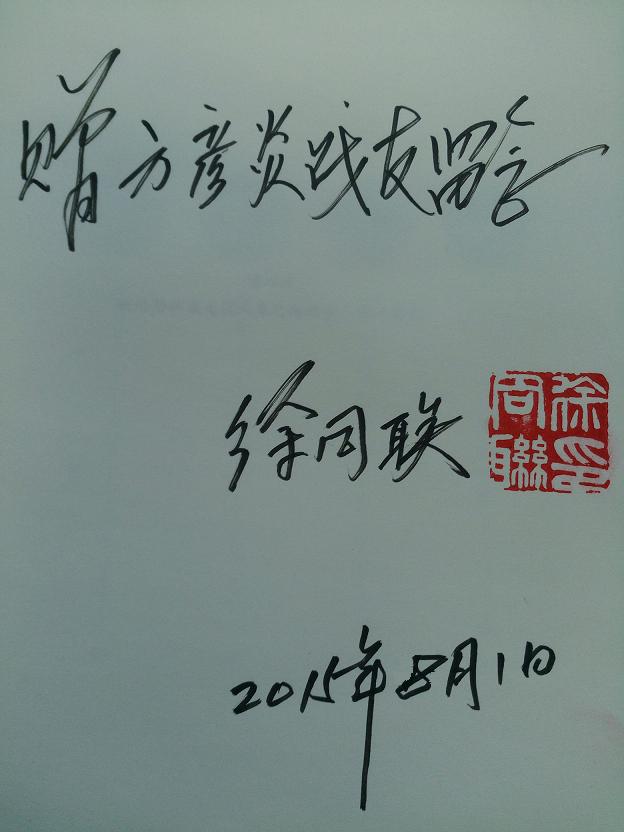 赠方彦炎战友留念
徐同联
徐印同聯
2015年8月1日